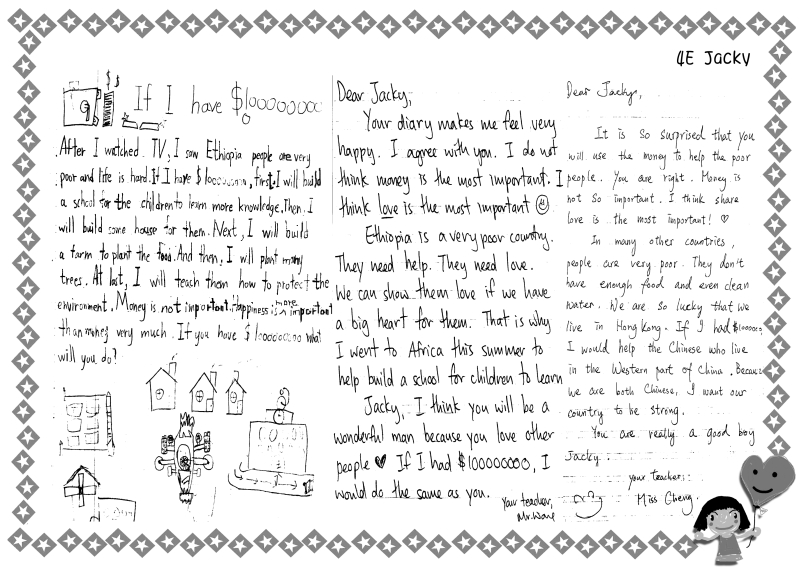 4E Jacky
$ $
If I have $100000000
After I watched TV, I saw Ethiopia people are very
poor and life is hard. If I have $100000000, first, I will build
a school for the children to learn more knowledge. Then, I
will build some house for them. Next, I will build
a farm to plant the food. And then, I will plant many
trees. At last, I will teach them how to protect the
environment. Money is not important. Happiness is more important
than money very much. If you have $100000000 what
will you do?
Dear Jacky,
Your diary makes me feel very
happy. I agree with you. I do not
think money is the most important. I
think love is the most important
Ethiopia is a very poor country.
They need help. They need love.
We can show them love if we have
a big heart for them. That is why
I went to Africa this summer to
help build a school for children to learn
Jacky, I think you will be a
wonderful man because you love other
people ♥ If I had $10000000, I
would do the same as you.
Your teacher,
Mr.
Dear Jacky,
It is so surprised that you
will use the money to help the poor
people. You are right. Money is
not so important. I think share
love is the most important! ♡
In many other countries,
people are very poor. They don't
have enough food and even clean
water. We are so lucky that we
live in Hong Kong. If I had $100000,
I would help the Chinese who live
in the Western part of China. Because
we are both Chinese, I want our
country to be strong.
You are really a good boy
Jacky.
your teacher,
Miss Cheng